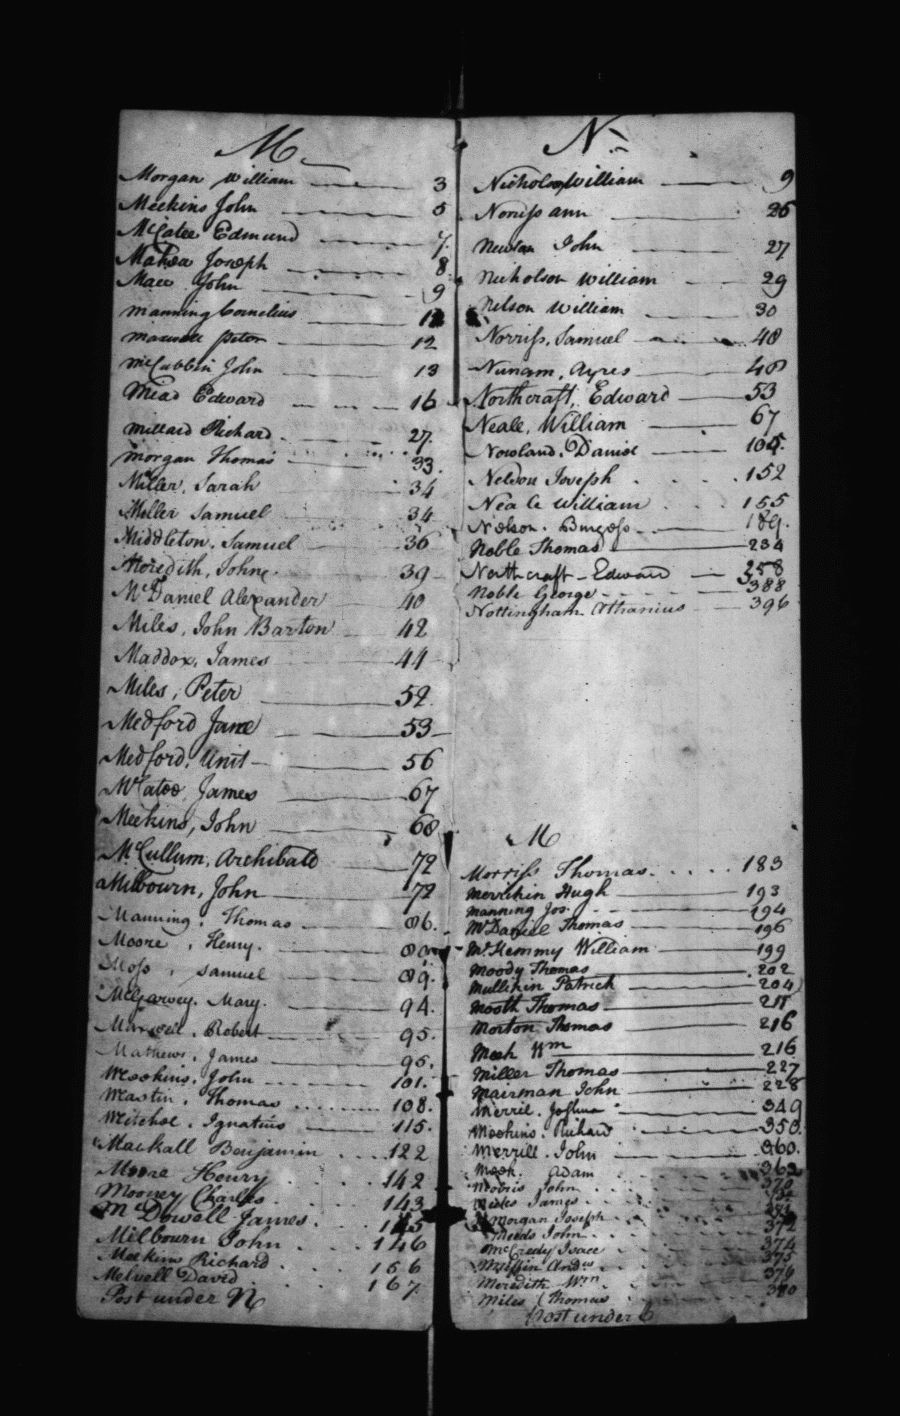 M
Morgan William 3
Meekins John 5
McCatee Edmund 7
Joseph 8
Mace John 9
Manning Cornelius
Maxwell Peter 12
McCubbin John 13
Mead Edward 16
Millard Richard 27
Morgan Thomas 33
Miller, Sarah 34
Miller Samuel 34
Middleton, Samuel 36
Meredith, John 39
McDaniel Alexander 40
Miles, John Barton 42
Maddox, James 44
Miles, Peter 52
Medford Jane 53
Medford, Unit 56
McCatee, James 67
Meekins, John 68
McCullum, Archibald 72
Milbourn, John 72
Manning, Thomas 86
Moore, Henry.
Moss, Samuel 89.
McGarvey, Mary. 94.
Maxwell, Robert 95.
Mathews, James 95.
Meekins, John 101.
Mastin, Thomas 108.
Mitchel, Ignatius 115.
Mackall Benjamin 122
Moore Henry 142
Mooney Charles 143
McDowell James 145
Milbourn John 146
Meekins Richard 156
Melvell David 167
Post under N
N
Nicholson William 9
Norriss ann 26
Newton John 27
Nicholson William 29
Nelson William 30
Norriss, Samuel 48
Nunam, Ayres 48
Northcraft, Edward 53
Neale, William 67
Nowland, Daniel 105.
Neldon Joseph 152
Neale William 155
Nelson, Burgess 189.
Noble Thomas 234
Northcraft Edward 258
Noble George 388
Nottingham Athanius 396
M
Morriss Thomas 183
Merrikin Hugh 193
Manning Jos. 194
McDaniel Thomas 196
McKemmy William 199
Moody Thomas 202
Mullikin Patrick 204
Mooth Thomas 211
Morton Thomas 216
Meek Wm 216
Miller Thomas 227
Mairman John 228
Merril, Joshua 349
Meekins, Richard 350.
Merrill, John 360.
Meek, Adam 362
Morris John 370
Miles James
Morgan Joseph 372
Meeds John
McCredy Isace 374
Muffin Andw 375
Meredith Wm 376
Miles Thomas 380
Post under